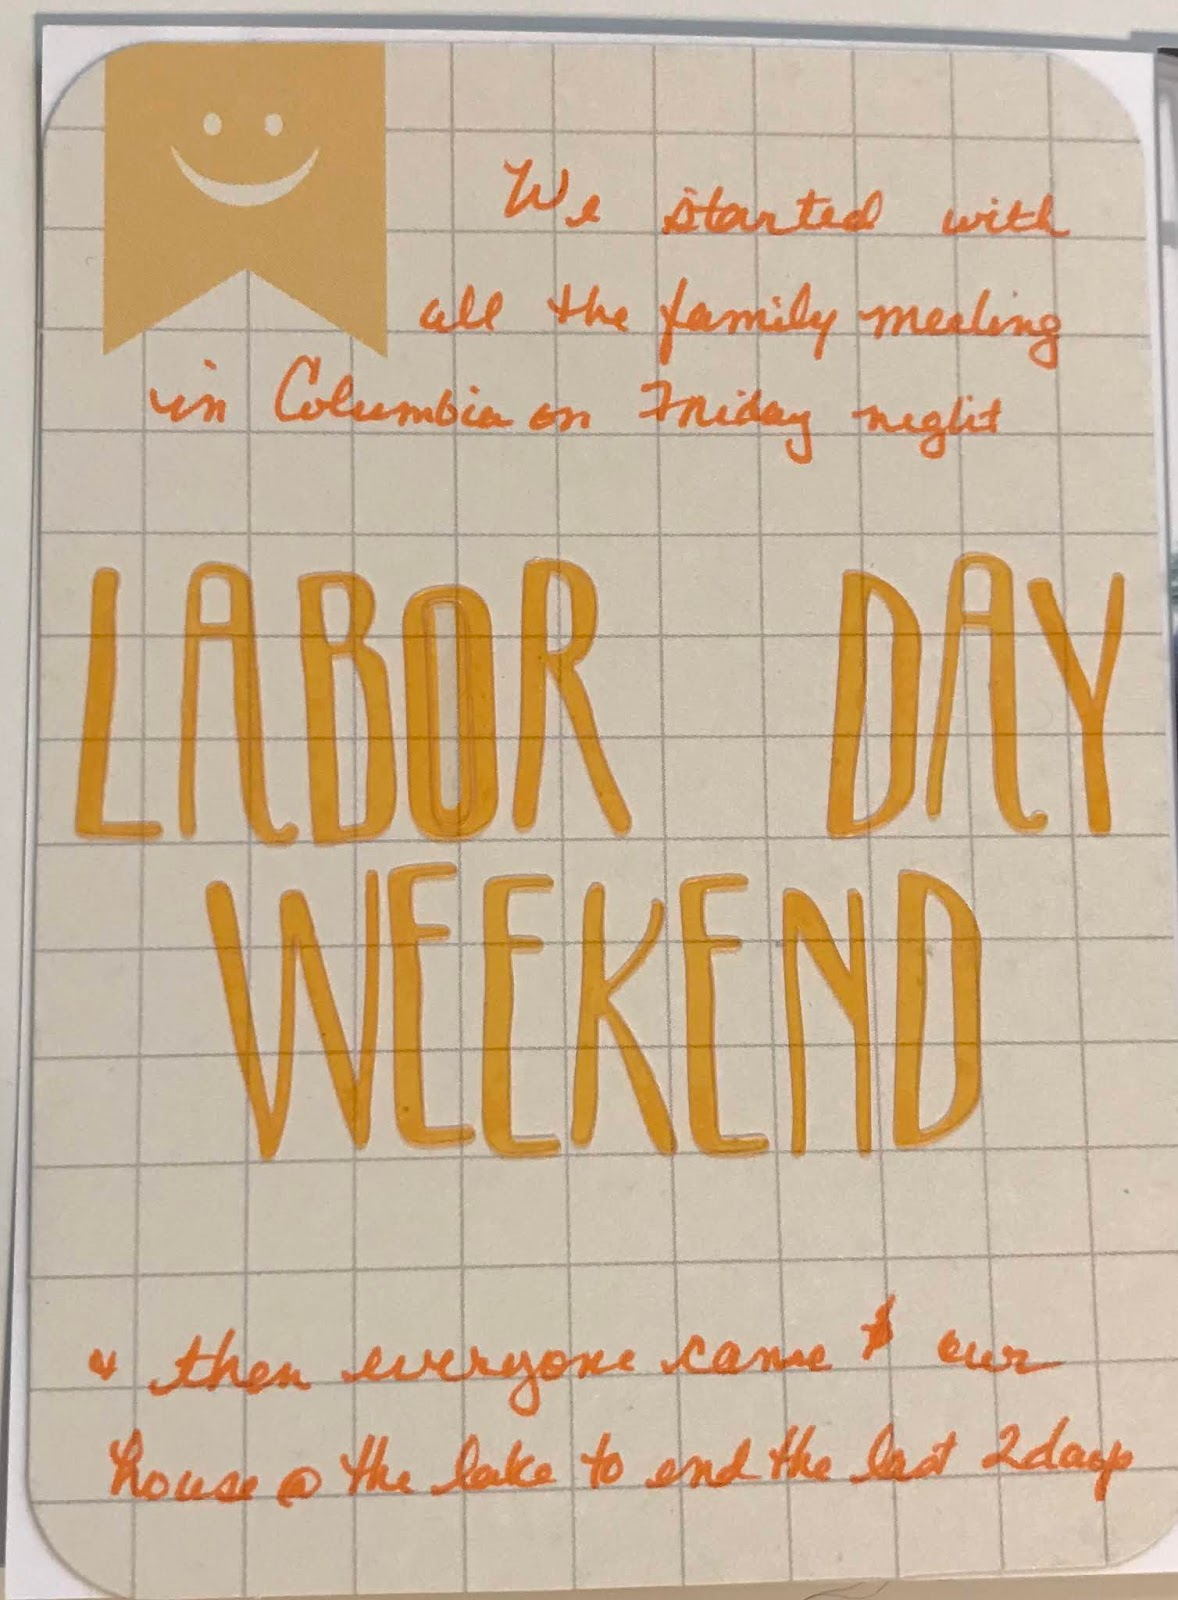 We started with
all the family meeting
in Columbia on Friday night
LABOR DAY
WEEKEND
& then everyone came to our
house @ the lake to end the last 2 days